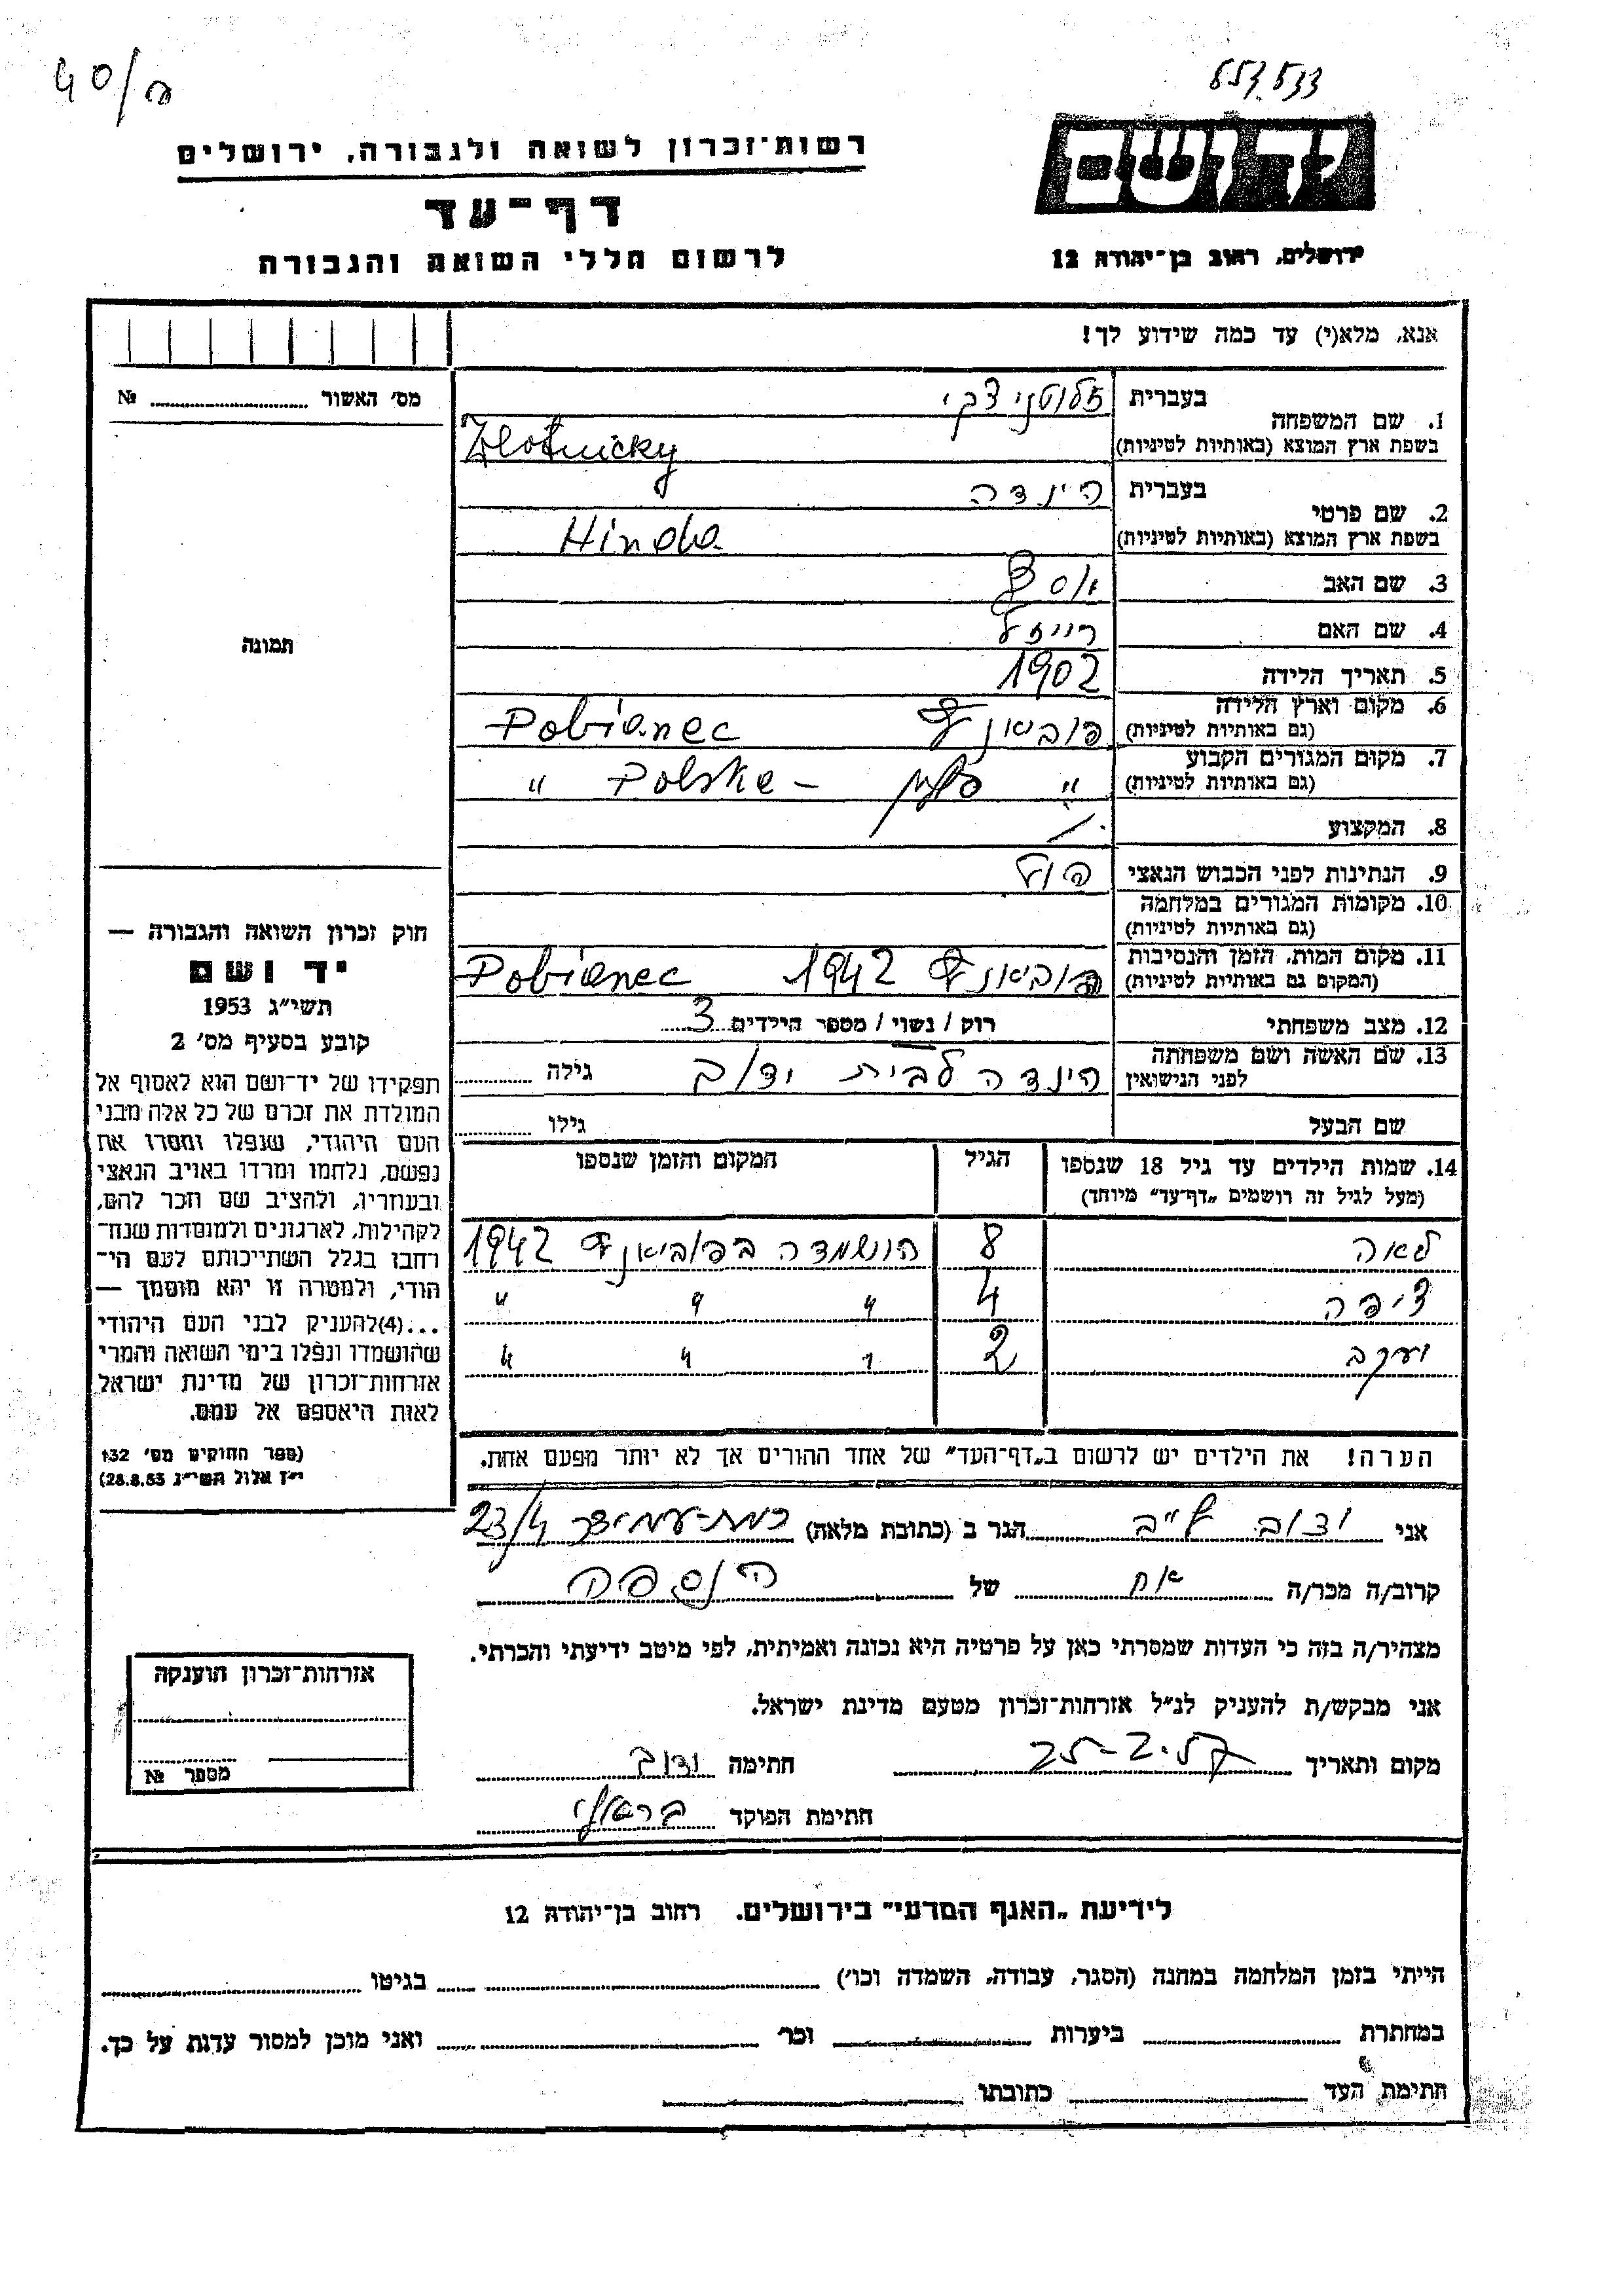 40/ם
553.533
רשות־זכרון לשואה ולגבורה, ירושלים
דף־עד
לרשום חללי השואה והגבורה
ידושם
ירושלים, רחוב בן־יהודה 12
אנא, מלא(י) עד כמה שידוע לך!
מס׳ האשור № 
1. שם המשפחה
בעברית זלוטניצקי
בשפת ארץ המוצא (באותיות לטיניות) Zlotnicky
2. שם פרטי
בעברית הינדה
בשפת ארץ המוצא (באותיות לטיניות) Hinda
3. שם האב
4. שם האם רייזל
5. תאריך הלידה 1902
6. מקום וארץ הלידה
(גם באותיות לטיניות) פוביאניץ Pobianec
7. מקום המגורים הקבוע
(גם באותיות לטיניות) " פולין – Polska "
8. המקצוע
9. הנתינות לפני הכבוש הנאצי
10. מקומות המגורים במלחמה
(גם באותיות לטיניות)
11. מקום המות, הזמן והנסיבות
(המקום גם באותיות לטיניות) פוביאניץ 1942 Pobianec
12. מצב משפחתי רוק / נשוי / מספר הילדים 3
13. שם האשה ושם משפחתה
לפני הנישואין הינדה לבית גילה
שם הבעל גילו
14. שמות הילדים עד גיל 18 שנספו
(מעל לגיל זה רושמים „דף־עד״ מיוחד)
הגיל
המקום והזמן שנספו
לאה 8 הושמדה בפוביאניץ 1942
ציפה 4 " " "
יעקב 2 " " "
הערה! את הילדים יש לרשום ב„דף־העד״ של אחד ההורים אך לא יותר מפעם אחת.
תמונה
חוק זכרון השואה והגבורה —
יד ושם
תשי״ג 1953
קובע בסעיף מס׳ 2
תפקידו של יד־ושם הוא לאסוף אל
המולדת את זכרם של כל אלה מבני
העם היהודי, שנפלו ומסרו את
נפשם, נלחמו ומרדו באויב הנאצי
ובעוזריו, ולהציב שם וזכר להם,
לקהילות, לארגונים ולמוסדות שנח־
רבו בגלל השתייכותם לעם הי־
הודי, ולמטרה זו יהא מוסמך —
...(4)להעניק לבני העם היהודי
שהושמדו ונפלו בימי השואה והמרי
אזרחות־זכרון של מדינת ישראל
לאות היאספם אל עמם.
(ספר החוקים מס׳ 132
י״ז אלול תשי״ג 28.8.53)
אני הגר ב (כתובת מלאה) רמת-עמידר 23/4
קרוב/ה מכר/ה אח של הנספה
מצהיר/ה בזה כי העדות שמסרתי כאן על פרטיה היא נכונה ואמיתית, לפי מיטב ידיעתי והכרתי.
אני מבקש/ת להעניק לנ״ל אזרחות־זכרון מטעם מדינת ישראל.
מקום ותאריך חתימה
חתימת הפוקד
אזרחות־זכרון הוענקה
מספר №
לידיעת „האגף המדעי״ בירושלים. רחוב בן־יהודה 12
הייתי בזמן המלחמה במחנה (הסגר, עבודה, השמדה וכו׳) בגיטו
במחתרת ביערות וכו׳ ואני מוכן למסור עדות על כך.
חתימת העד כתובתו